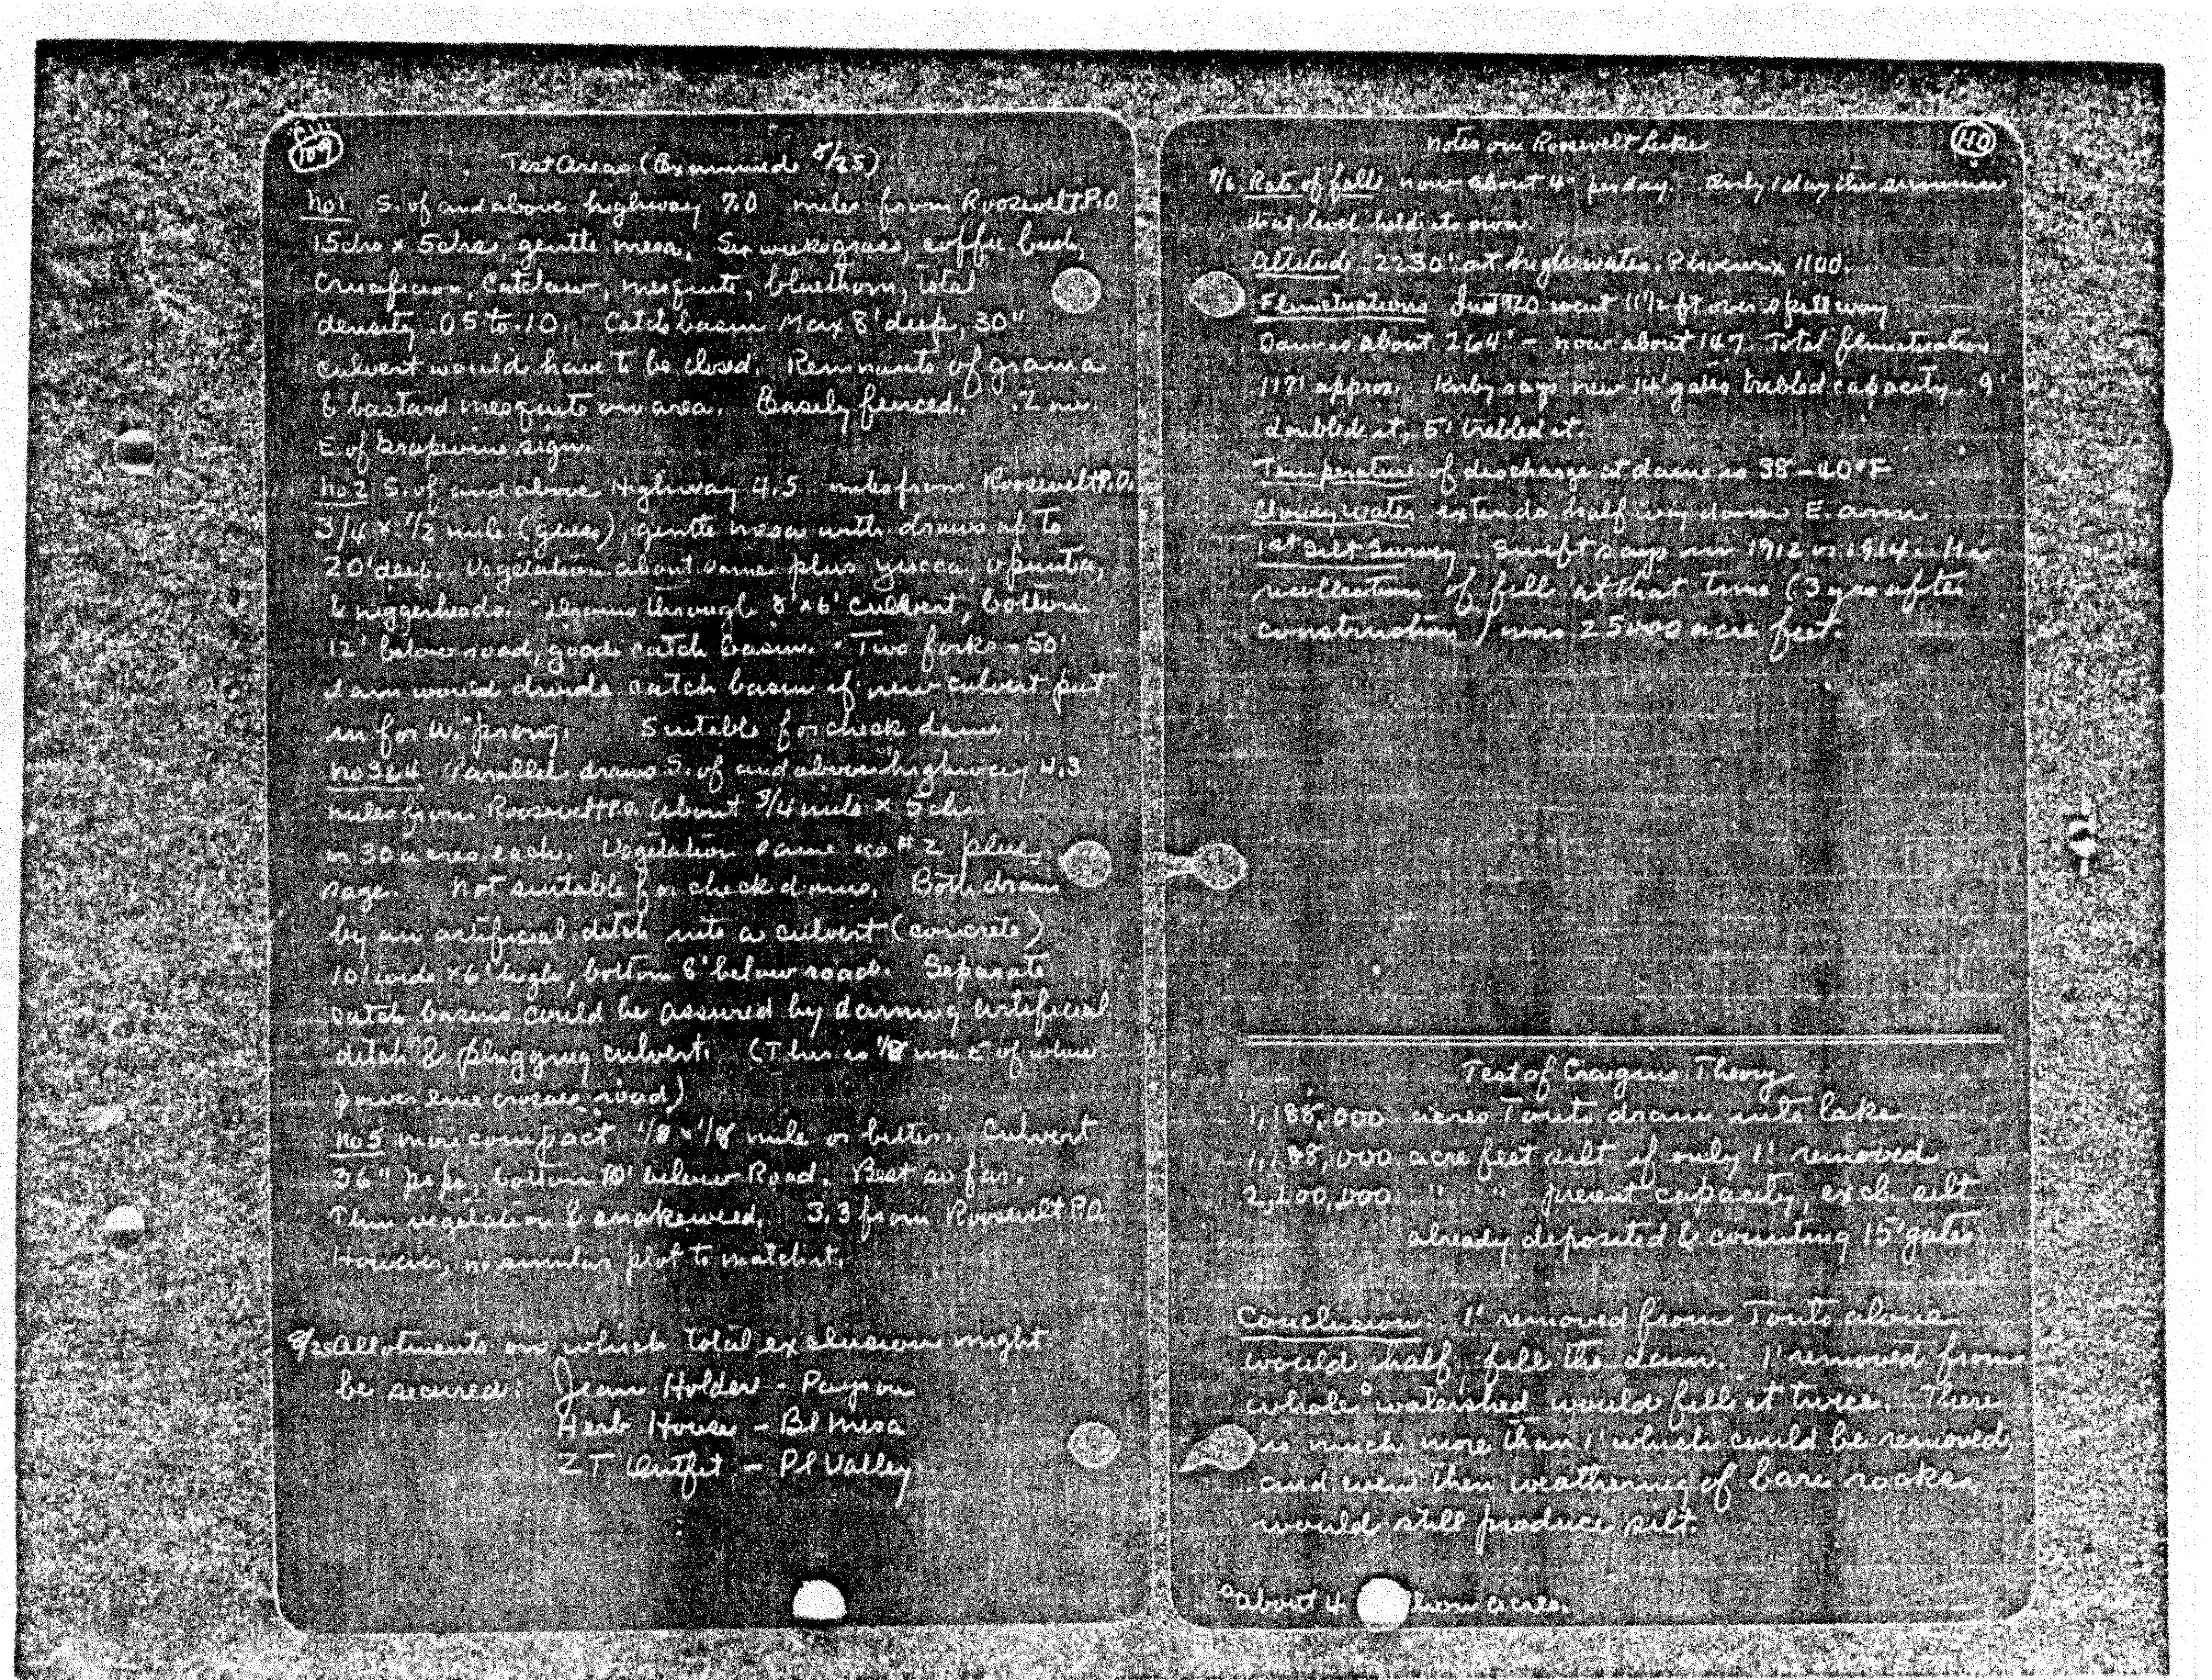 109
Test Areas (Examined 8/25)
No 1 S. of and above highway 7.0 miles from Roosevelt P.O
15chs x 5chs, gentle mesa, Six weeks grass, coffee bush,
Crucifixion, Catclaw, mesquite, bluethorn, total
density .05 to .10. Catch basin Max 8' deep, 30"
culvert would have to be closed. Remnants of grama
& bastard mesquite on area. Easily fenced. .2 mi.
E of Grapevine sign.
No 2 S. of and above Highway 4.5 miles from Roosevelt P.O.
3/4 x 1/2 mile (guess), gentle mesa with draws up to
20' deep. Vegetation about same plus yucca, opuntia,
& niggerheads. Drains through 8'x6' culvert, bottom
12' below road, good catch basin. Two forks - 50'
dam would divide catch basin if new culvert put
in for W. prong. Suitable for check dams
No 3&4 Parallel draws S. of and above highway 4.3
miles from Roosevelt P.O. About 3/4 mile x 5 ch
or 30 acres each. Vegetation same as #2 plus
sage. Not suitable for check dams. Both drain
by an artificial ditch into a culvert (concrete)
10' wide x 6' high, bottom 8' below road. Separate
catch basins could be assured by damming artificial
ditch & plugging culvert. (This is 1/8 mi E of where
power line crosses road)
No 5 more compact 1/8 x 1/8 mile or better. Culvert
36" pipe, bottom below Road. Best so far.
Thin vegetation & snakeweed. 3.3 from Roosevelt P.O.
However, no similar plot to match it.
8/25 Allotments on which total exclusion might
be secured: Jean Holder - Payson
Herb House - Bl Mesa
ZT Outfit - Pl Valley
Notes on Roosevelt Lake
40
8/6 Rate of fall now about 4" per day. Only 1 day this summer
that level held its own.
Altitude 2230' at high water. Phoenix 1100.
Flunctuations In 1920 went 11 1/2 ft over spillway
Dam is about 264' - now about 147. Total flunctuation
117' approx. Kirby says new 14' gates trebled capacity. 9'
doubled it, 5' trebled it.
Temperature of discharge at dam is 38-40°F
Cloudy water extends half way down E. arm
1st Silt Survey Swift says in 1912 or 1914. His
recollection of fill at that time (3 yrs after
construction) was 25000 acre feet.
Test of Craigins Theory
1,188,000 acres Tonto drains into lake
1,188,000 acre feet silt if only 1' removed
2,200,000 " " present capacity, excl. silt
already deposited & counting 15' gates
Conclusion: 1' removed from Tonto alone
would half fill the dam. 1' removed from
whole° watershed would fill it twice. There
is much more than 1' which could be removed,
and even then weathering of bare rocks
would still produce silt.
°about 4 acres.